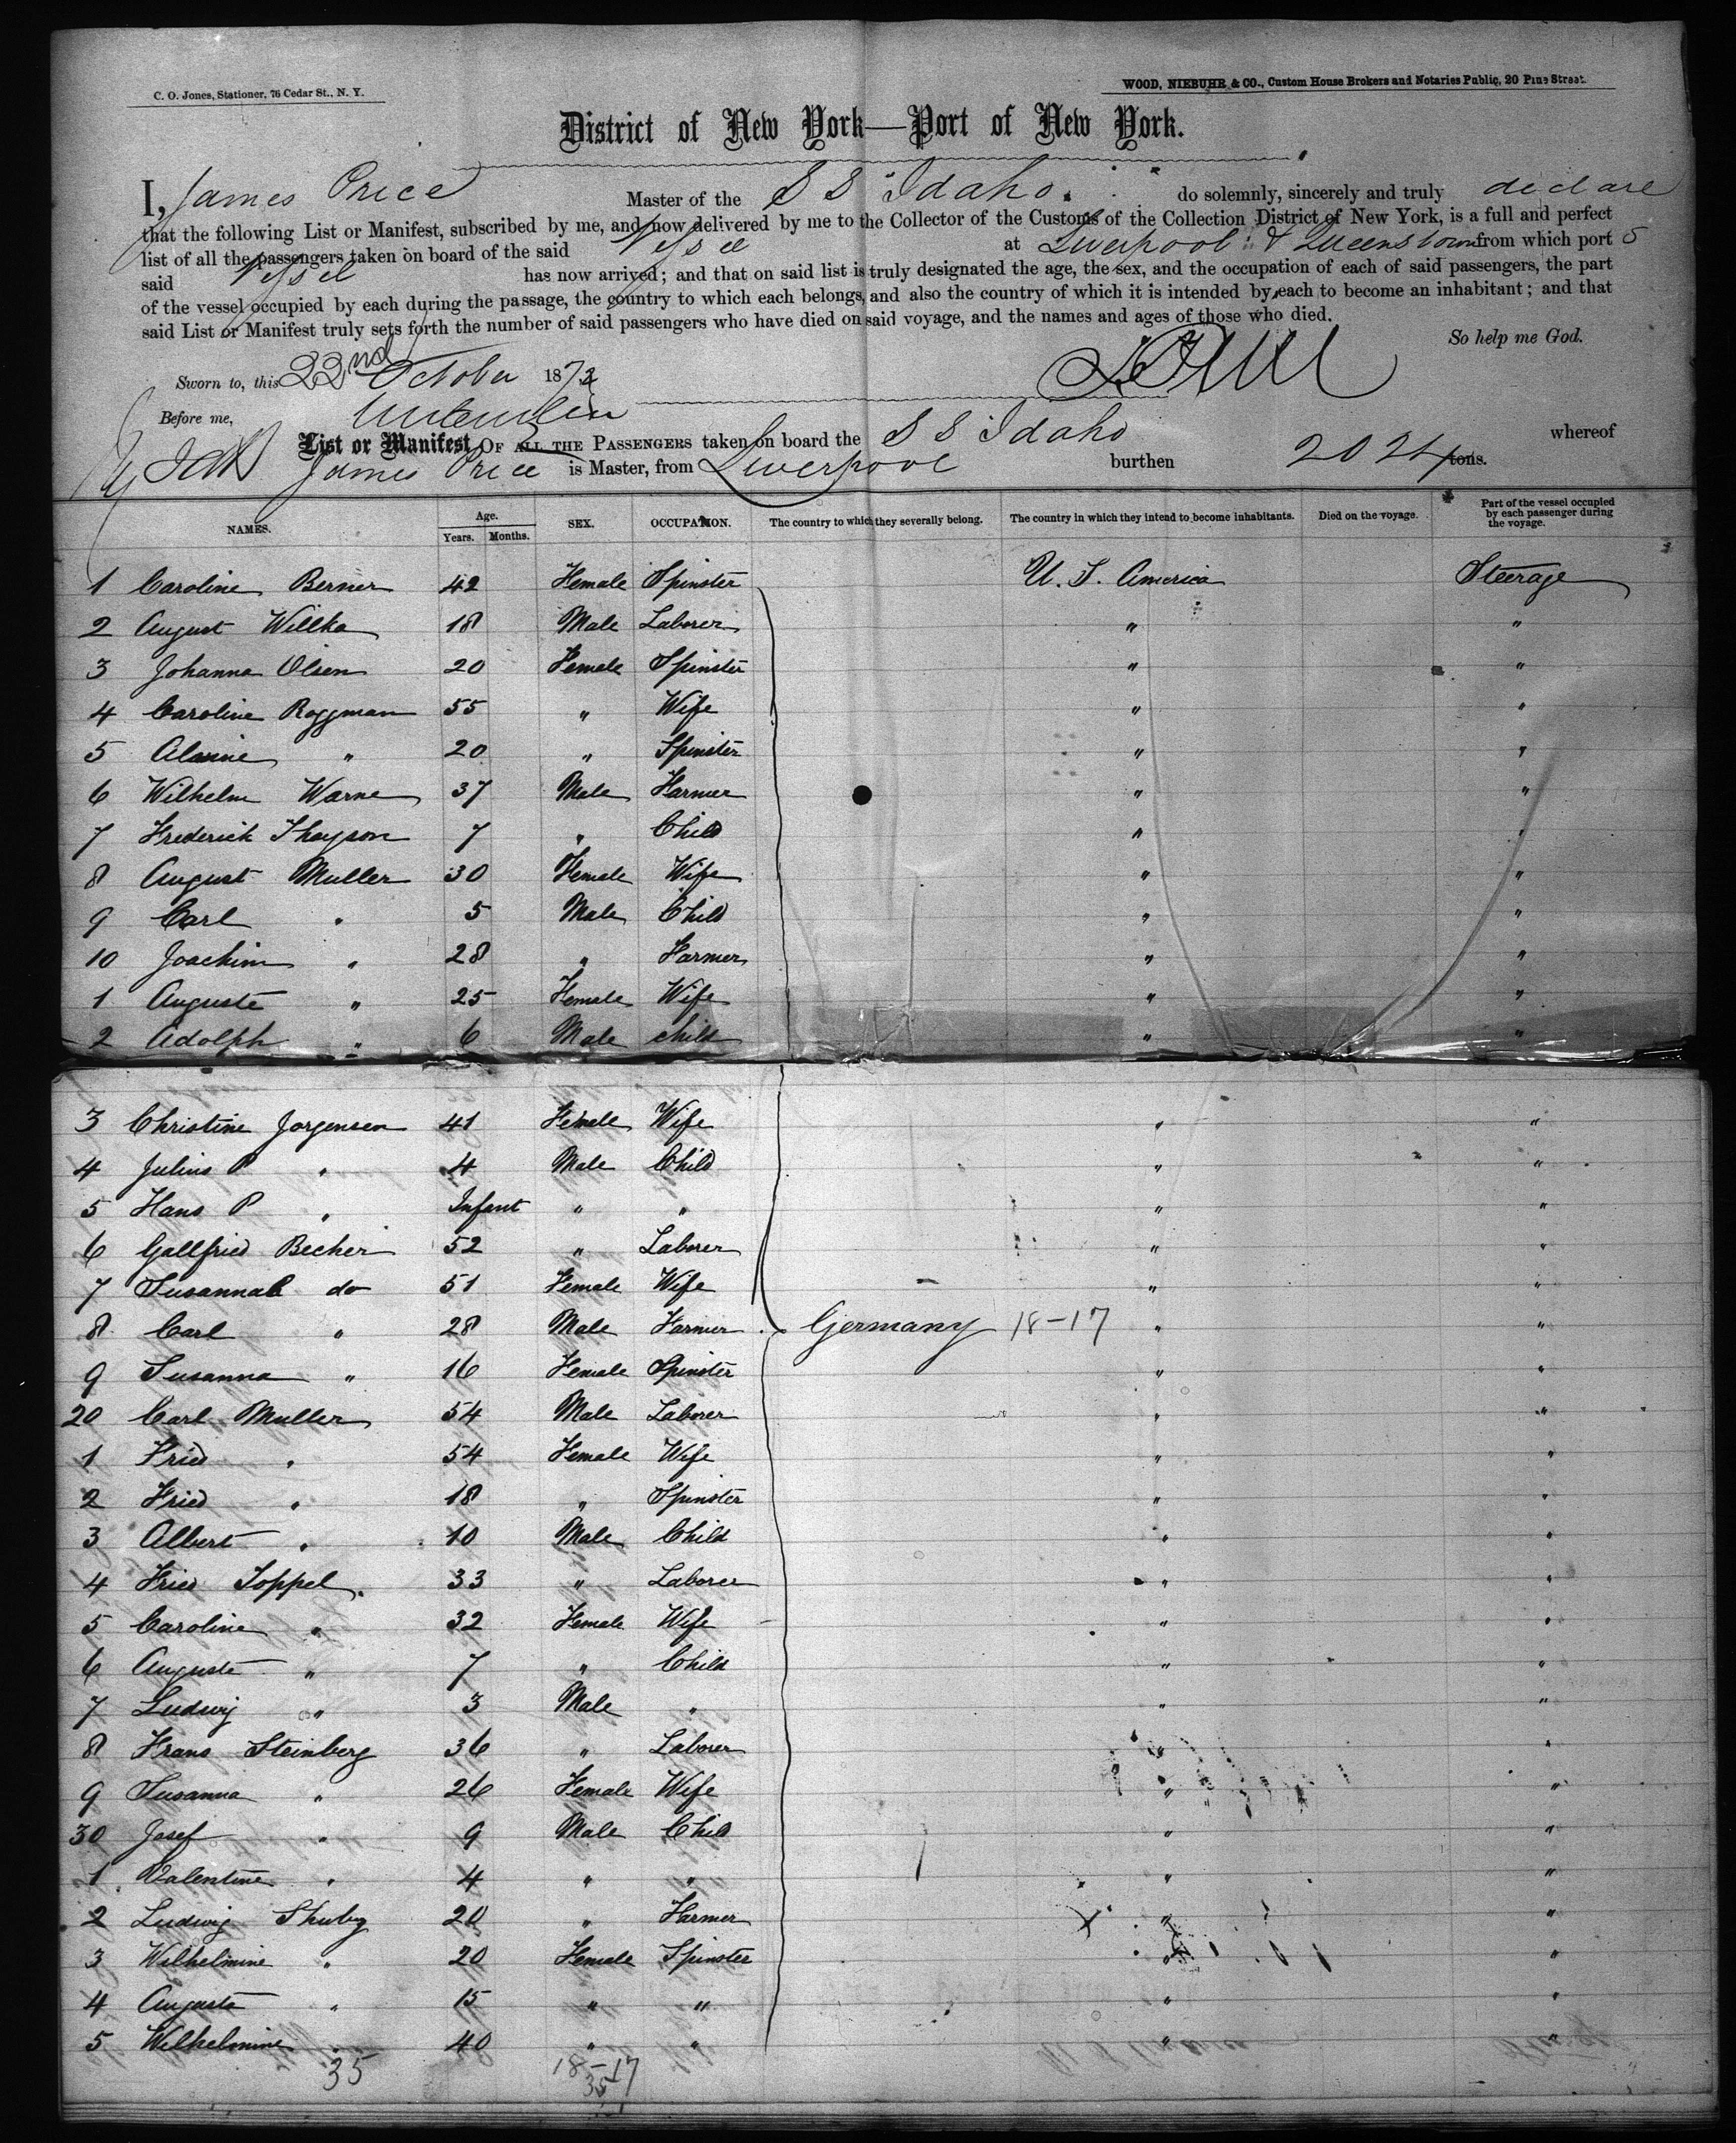 C. O. Jones, Stationer, 76 Cedar St., N. Y.
WOOD, NIEBUHR & CO., Custom House Brokers and Notaries Public, 20 Pine Street.
District of New York—Port of New York.
I, James Price Master of the S S Idaho. do solemnly, sincerely and truly declare
that the following List or Manifest, subscribed by me, and now delivered by me to the Collector of the Customs of the Collection District of New York, is a full and perfect
list of all the passengers taken on board of the said Vessel at Liverpool & Queenstown from which port
said Vessel has now arrived; and that on said list is truly designated the age, the sex, and the occupation of each of said passengers, the part
of the vessel occupied by each during the passage, the country to which each belongs, and also the country of which it is intended by each to become an inhabitant; and that
said List or Manifest truly sets forth the number of said passengers who have died on said voyage, and the names and ages of those who died.
So help me God.
Sworn to, this 22nd October 1873
Before me,
List or Manifest OF ALL THE PASSENGERS taken on board the S S Idaho whereof
James Price is Master, from Liverpool burthen 2024 tons.
NAMES. Age. Years. Months. SEX. OCCUPATION. The country to which they severally belong. The country in which they intend to become inhabitants. Died on the voyage. Part of the vessel occupied by each passenger during the voyage.
1 Caroline Berner 42 Female Spinster U. S. America Steerage
2 August Willka 18 Male Laborer " "
3 Johanna Olsen 20 Female Spinster " "
4 Caroline Roggman 55 " Wife " "
5 " 20 " Spinster " "
6 Wilhelm Warne 37 Male Farmer " "
7 Frederick Thayson 7 " Child " "
8 August Muller 30 Female Wife " "
9 Carl " 5 Male Child " "
10 Joachim " 28 " Farmer " "
1 Auguste " 25 Female Wife " "
2 Adolph " 6 Male child " "
3 Christine Jorgensen 41 Female Wife " "
4 Julius P " 4 Male Child " "
5 Hans P " Infant " " " "
6 Gallfried Becher 52 " Laborer " "
7 Susannah do 51 Female Wife " "
8 Carl " 28 Male Farmer Germany 18-17 " "
9 Susanna " 16 Female Spinster " "
20 Carl Muller 54 Male Laborer " "
1 Fried " 54 Female Wife " "
2 Fried " 18 " Spinster " "
3 Albert " 10 Male Child " "
4 Fried Toppel 33 " Laborer " "
5 Caroline " 32 Female Wife " "
6 Auguste " 7 " Child " "
7 Ludwig " 3 Male " " "
8 Frans Steinberg 36 " Laborer " "
9 Susanna " 26 Female Wife " "
30 Josef " 9 Male Child " "
1 Valentine " 4 " " " "
2 Ludwig Shubg 20 " Farmer " "
3 Wilhelmine " 20 Female Spinster " "
4 Auguste " 15 " " " "
5 Wilhelmine " 40 " " " "
35 18-17
35